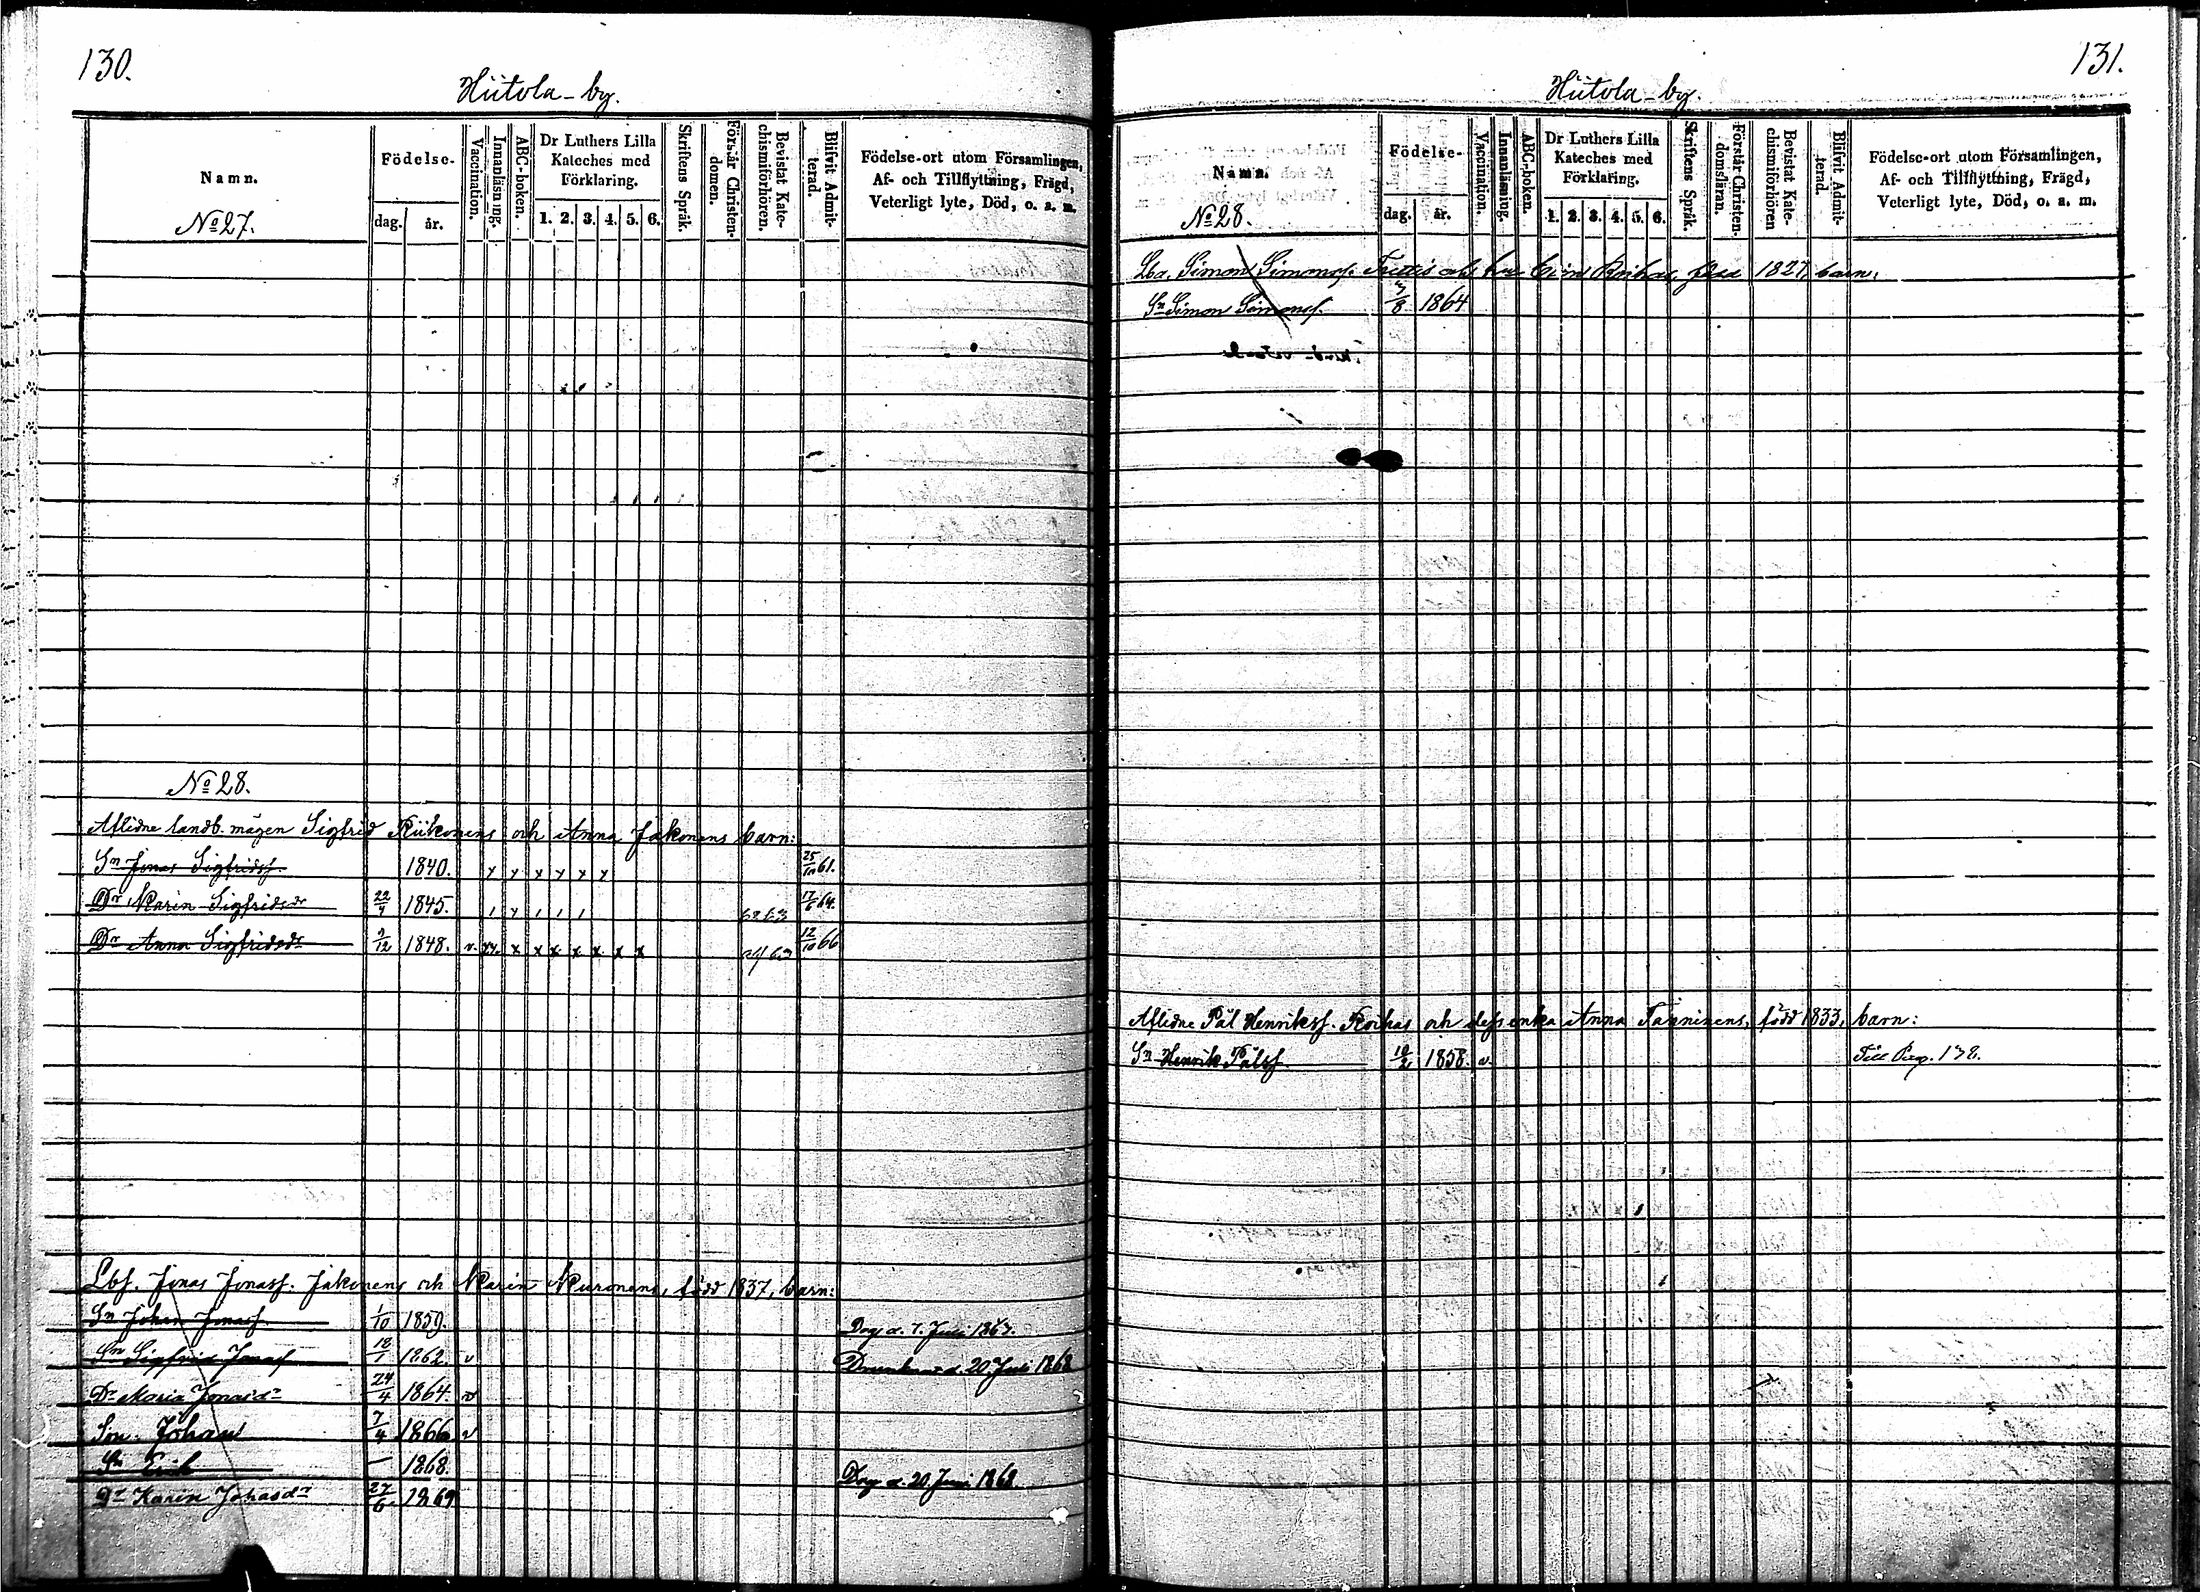 130.
Hiitola-by.
Namn.
Födelse-
dag. år.
Vaccination.
Innanläsning.
ABC-boken.
Dr Luthers Lilla Kateches med Förklaring.
1. 2. 3. 4. 5. 6.
Skriftens Språk.
Förstår Christen-domen.
Bevistat Kate-chismiförhören.
Blifvit Admit-terad.
Födelse-ort utom Församlingen,
Af- och Tillflyttning, Frägd,
Veterligt lyte, Död, o. a. m.
No 27.
No 28.
Aflidne landb. mågen Sigfrid Riikonens och Anna Jakonens barn:
Sn Jonas Sigfridsf. 1840. x x x x x x 25/10 61.
Dr Karin Sigfridsdr 22/4 1845. 17/6 64.
Dr Anna Sigfridsdr 9/12 1848. v. x x x x x x x 12/10 66
Lbf. Jonas Jonasf. Jakonens och Karin Muronens, född 1837, barn:
Sn Johan Jonasf. 1/10 1859. Dog d. 7. Juli 1867.
Sn Sigfrid Jonasf 18/1 1862. v d. 20 Juli 1868
Dr Maria Jonasdr 24/4 1864. v
Son. Johan 7/4 1866 v
Sn Erik — 1868. Dog d. 20 Juni 1868.
Dr Karin Jonasdr 27/6 1869
131.
Hiitola-by.
Namn.
Födelse-
dag. år.
Vaccination.
Innanläsning.
ABC-boken.
Dr Luthers Lilla Kateches med Förklaring.
1. 2. 3. 4. 5. 6.
Skriftens Språk.
Förstår Christen-domsläran.
Bevistat Kate-chismiförhören
Blifvit Admit-terad.
Födelse-ort utom Församlingen,
Af- och Tillflyttning, Frägd,
Veterligt lyte, Död, o. a. m.
No 28.
Simon Simonsf. och Roihas, född 1827, barn:
Sn Simon Simonsf. 1864
Aflidne Pål Henriksf. Roihas och dess enka Anna Tanninens, född 1833, barn:
Sn Henrik Pålsf. 10/2 1858. v. Till Pag. 138.